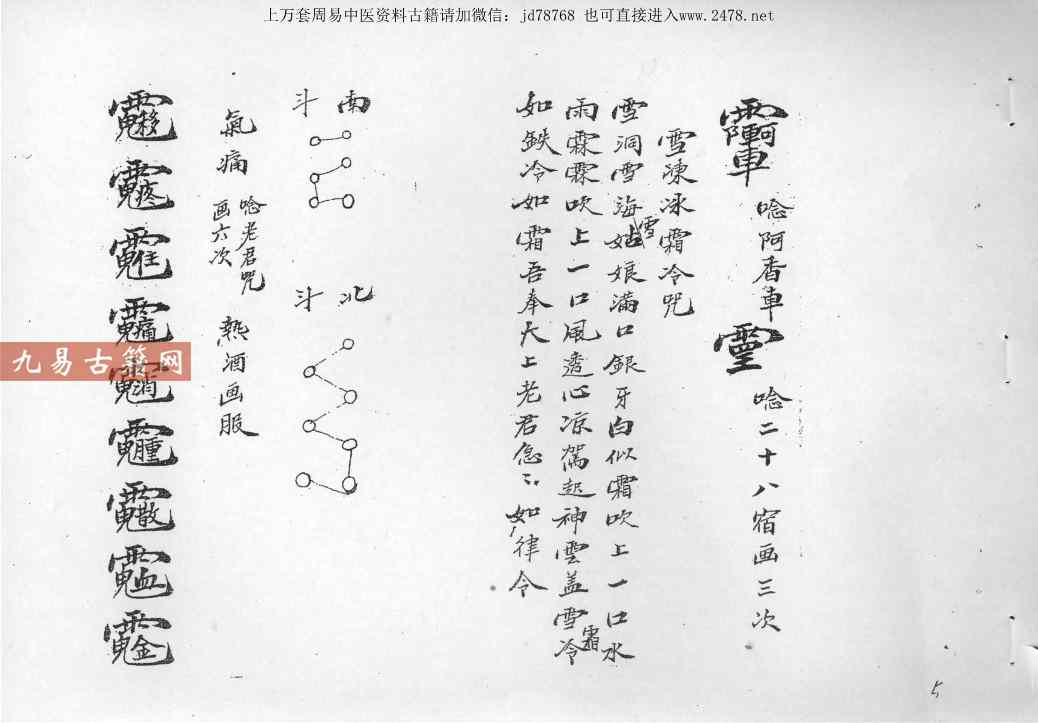 上万套周易中医资料古籍请加微信：jd78768 也可直接进入www.2478.net
唸阿香車
唸二十八宿画三次
雪凍冰霜冷咒
雪洞雪海雪姑娘满口銀牙白似霜吹上一口水
雨霖霖吹上一口風透心凉駕起神雲盖雪霜冷
如鉄冷如霜吾奉大上老君急々如律令
南斗
北斗
氣痛
唸老君咒
画六次
热酒画服
九易古籍网
5